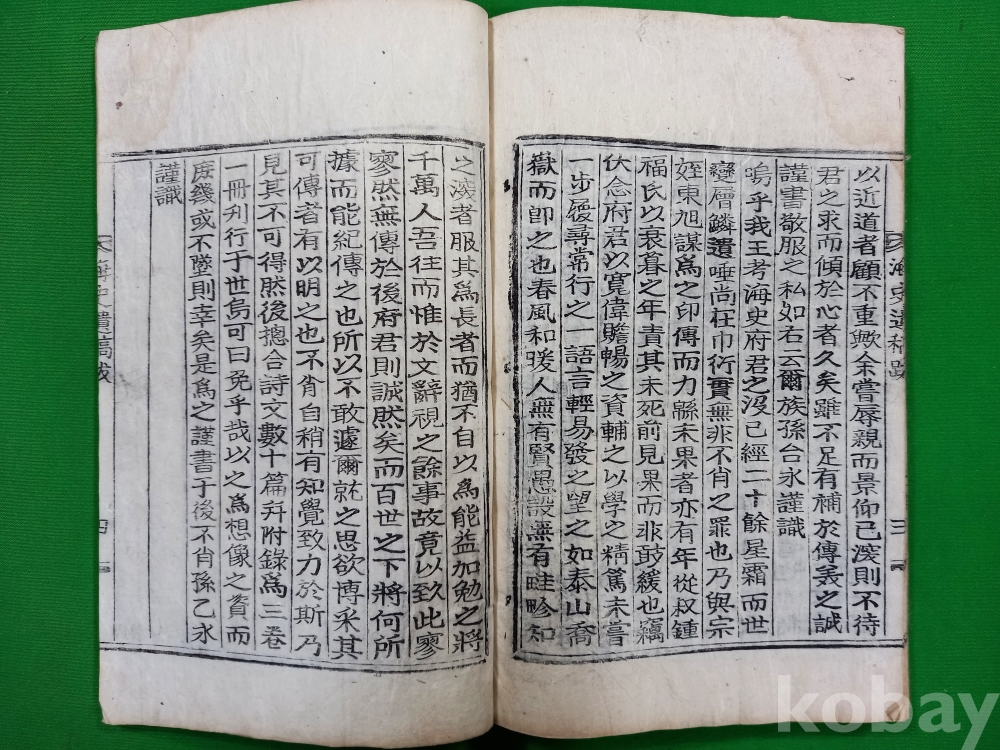 海史遺稿跋
三
以近道者顧不重歟余嘗辱親而景仰已深則不待
君之求而傾於心者久矣雖不足有補於傳羲之誠
謹書敬服之私如右云爾族孫台永謹識
嗚乎我王考海史府君之沒已經二十餘星霜而世
變層鱗遺唾尚在巾衍實無非不肖之罪也乃與宗
姪東旭謀為之印傳而力緜未果者亦有年從叔鍾
福氏以衰暮之年責其未死前見果而非敢緩也竊
伏念府君以寬偉贍暢之資輔之以學之精篤未嘗
一步履尋常行之一語言輕易發之望之如泰山喬
嶽而即之也春風和暖人無有賢愚設無有畦畛知
之深者服其為長者而猶不自以為能益加勉之將
千萬人吾往而惟於文辭視之餘事故竟以致此寥
寥然無傳於後府君則誠然矣而百世之下將何所
據而能紀傳之也所以不敢遽爾就之思欲博采其
可傳者有以明之也不肖自稍有知覺致力於斯乃
見其不可得然後摠合詩文數十篇幷附錄為三卷
一冊刋行于世烏可曰免乎哉以之為想像之資而
庶幾或不墜則幸矣是為之謹書于後不肖孫乙永
謹識
海史遺稿跋
四
kobay